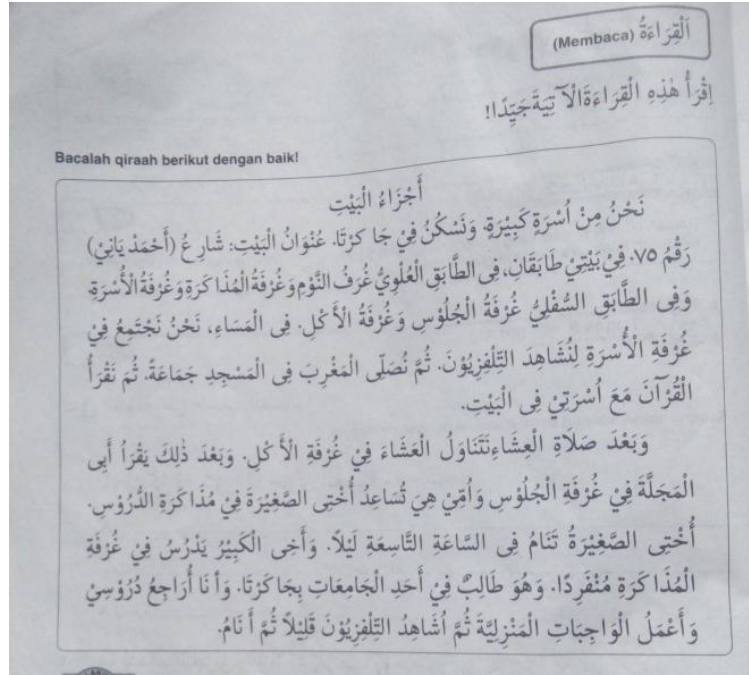 اَلْقِرَاءَةُ (Membaca)
اِقْرَأْ هٰذِهِ الْقِرَاءَةَ الْآتِيَةَ جَيِّدًا!
Bacalah qiraah berikut dengan baik!
أَجْزَاءُ الْبَيْتِ
نَحْنُ مِنْ اُسْرَةٍ كَبِيْرَةٍ. وَنَسْكُنُ فِيْ جَاكَرْتَا. عُنْوَانُ الْبَيْتِ: شَارِعُ (أَحْمَدْ يَانِيْ)
رَقْمُ ٧٥. فِيْ بَيْتِيْ طَابَقَانِ، فِى الطَّابَقِ الْعُلْوِيُّ غُرَفُ النَّوْمِ وَغُرْفَةُ الْمُذَاكَرَةِ وَغُرْفَةُ الْأُسْرَةِ.
وَفِى الطَّابَقِ السُّفْلِيُّ غُرْفَةُ الْجُلُوْسِ وَغُرْفَةُ الْأَكْلِ. فِى الْمَسَاءِ، نَحْنُ نَجْتَمِعُ فِيْ
غُرْفَةِ الْأُسْرَةِ لِنُشَاهِدَ التِّلْفِزِيُوْنَ. ثُمَّ نُصَلِّى الْمَغْرِبَ فِى الْمَسْجِدِ جَمَاعَةً. ثُمَ نَقْرَأُ
الْقُرْآنَ مَعَ اُسْرَتِيْ فِى الْبَيْتِ.
وَبَعْدَ صَلَاةِ الْعِشَاءِ نَتَنَاوَلُ الْعَشَاءَ فِيْ غُرْفَةِ الْأَكْلِ. وَبَعْدَ ذٰلِكَ يَقْرَاُ أَبِى
الْمَجَلَّةَ فِيْ غُرْفَةِ الْجُلُوْسِ وَاُمِّيْ هِيَ تُسَاعِدُ اُخْتِى الصَّغِيْرَةَ فِيْ مُذَاكَرَةِ الدُّرُوْسِ.
اُخْتِى الصَّغِيْرَةُ تَنَامُ فِى السَّاعَةِ التَّاسِعَةِ لَيْلًا. وَأَخِى الْكَبِيْرُ يَدْرُسُ فِيْ غُرْفَةِ
الْمُذَاكَرَةِ مُنْفَرِدًا. وَهُوَ طَالِبٌ فِيْ أَحَدِ الْجَامِعَاتِ بِجَاكَرْتَا. وَأَنَا أُرَاجِعُ دُرُوْسِيْ
وَأَعْمَلُ الْوَاجِبَاتِ الْمَنْزِلِيَّةَ ثُمَّ اُشَاهِدُ التِّلْفِزِيُوْنَ قَلِيْلًا ثُمَّ أَنَامُ.